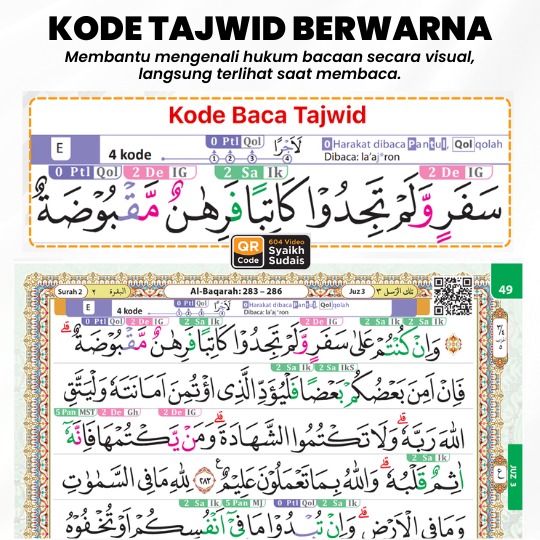 KODE TAJWID BERWARNA
Membantu mengenali hukum bacaan secara visual,
langsung terlihat saat membaca.
Kode Baca Tajwid
E
4 kode
0 Ptl Qol
لَاَجْرًا
1 2 3 4
0 Harakat dibaca Pantul, Qol qolah
Dibaca: la'aj*ron
0 Ptl Qol 2 De IG 2 Sa Ik 2 De IG
سَفَرٍ وَّلَمْ تَجِدُوْا كَاتِبًا فَرِهٰنٌ مَّقْبُوْضَةٌ
QR Code
604 Video
Syaikh
Sudais
Surah 2
٢ البقرة
Al-Baqarah: 283 – 286
Juz 3
تلك الرّسل ٣
49
E
4 kode
0 Ptl Qol
لَاَجْرًا
0 Harakat dibaca Pantul, Qol qolah
Dibaca: la'aj*ron
0 Ptl Qol 2 De IG 2 Sa Ik 2 De IG 2 Sa Ik 2 Sa Ik
وَاِنْ كُنْتُمْ عَلٰى سَفَرٍ وَّلَمْ تَجِدُوْا كَاتِبًا فَرِهٰنٌ مَّقْبُوْضَةٌ ۗ
2 Sa Ik 2 Sa IkS
فَاِنْ اَمِنَ بَعْضُكُمْ بَعْضًا فَلْيُؤَدِّ الَّذِى اؤْتُمِنَ اَمَانَتَهٗ وَلْيَتَّقِ
5 Pan MST 2 De Gh 2 De IG
اللّٰهَ رَبَّهٗ ۗ وَلَا تَكْتُمُوا الشَّهَادَةَ ۗ وَمَنْ يَّكْتُمْهَا فَاِنَّهٗٓ
2 Sa Ik
اٰثِمٌ قَلْبُهٗ ۗ وَاللّٰهُ بِمَا تَعْمَلُوْنَ عَلِيْمٌ ۝٢٨٣ لِلّٰهِ مَا فِى السَّمٰوٰتِ
2 Sa Ik 5 Pan MJ 0 Ptl Qol 2 Sa Ik
وَمَا فِى الْاَرْضِ ۗ وَاِنْ تُبْدُوْا مَا فِيْٓ اَنْفُسِكُمْ اَوْ تُخْفُوْهُ
JUZ 3